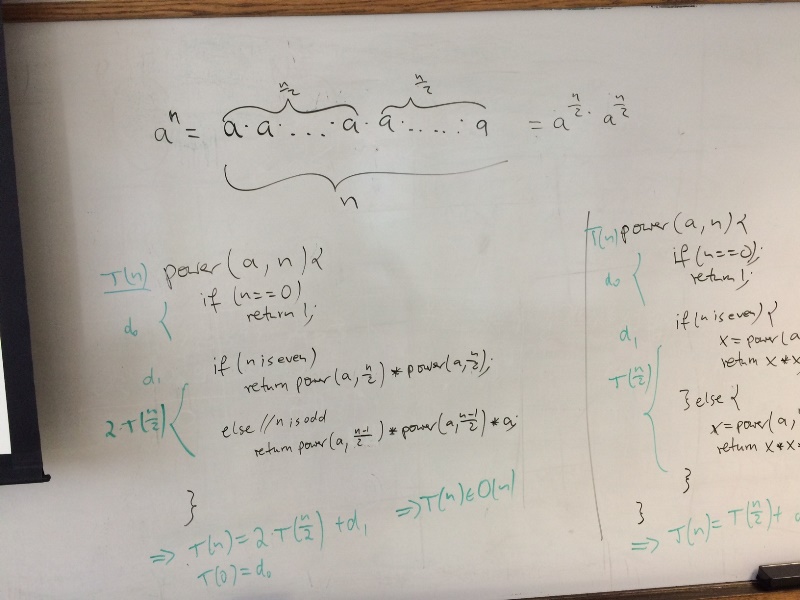 n/2 n/2
aⁿ = a · a · . . . · a · a · . . . . : a = a^(n/2) · a^(n/2)
n
T(n) power(a, n) {
d₀ if (n==0)
return 1;
d₁ if (n is even)
return power(a, n/2) * power(a, n/2);
2·T(n/2)
else // n is odd
return power(a, (n-1)/2) * power(a, (n-1)/2) * a;
}
⇒ T(n) = 2·T(n/2) + d₁ ⇒ T(n) ∈ O(n)
T(0) = d₀
T(n) power(a, n) {
d₀ if (n==0);
return 1;
d₁ if (n is even) {
x = power(a
return x * x
T(n/2)
} else {
x = power(a,
return x * x
}
}
⇒ T(n) = T(n/2) +